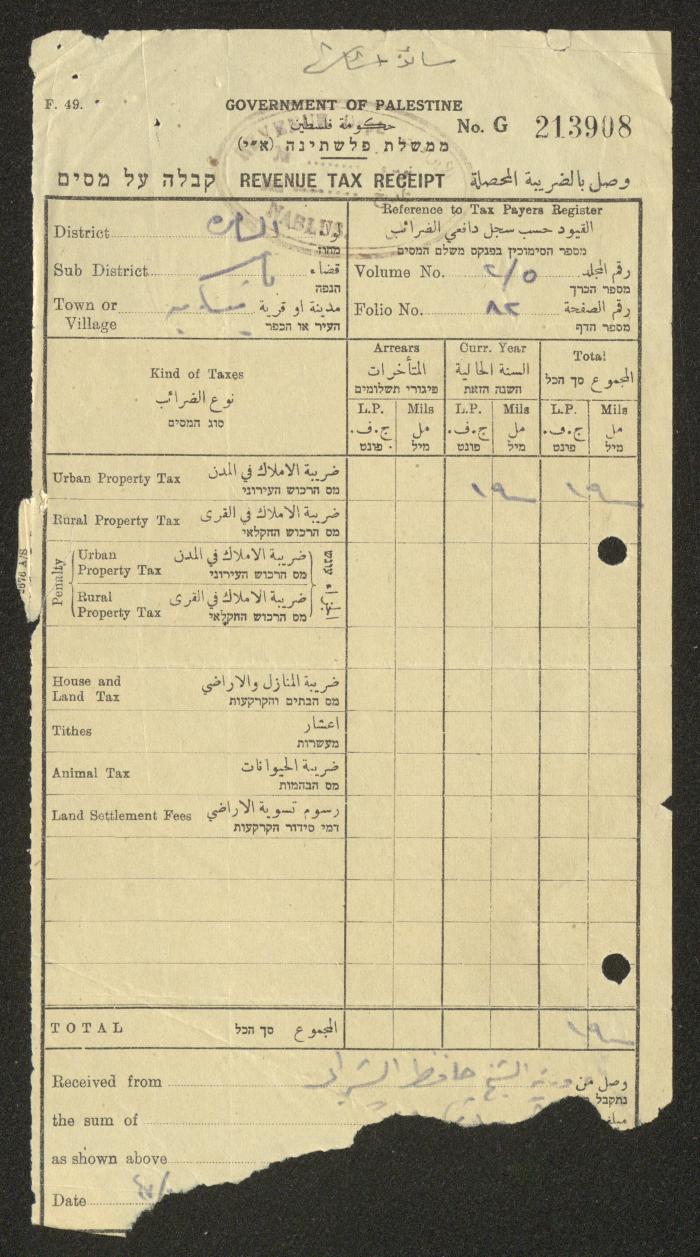 F. 49.
GOVERNMENT OF PALESTINE
حكومة فلسطين
ממשלת פלשתינה (א״י)
No. G 213908
קבלה על מסים REVENUE TAX RECEIPT وصل بالضريبة المحصلة
NABLUS
District لواء
מחוז
Sub District قضاء
הנפה
Town or Village مدينة او قرية
העיר או הכפר
Reference to Tax Payers Register
القيود حسب سجل دافعي الضرائب
מספר הסימוכין בפנקס משלם המסים
Volume No. ٢/٥ رقم المجلد
מספר הכרך
Folio No. ٨٢ رقم الصفحة
מספר הדף
Kind of Taxes
نوع الضرائب
סוג המסים
Arrears
المتأخرات
פיגורי תשלומים
Curr. Year
السنة الحالية
השנה הזאת
Total
المجموع סך הכל
L.P. Mils L.P. Mils L.P. Mils
ج.ف. مل ج.ف. مل ج.ف. مل
פונט מיל פונט מיל פונט מיל
Urban Property Tax ضريبة الاملاك في المدن
מס הרכוש העירוני
١٩ ١٩
Rural Property Tax ضريبة الاملاك في القرى
מס הרכוש החקלאי
Penalty
Urban Property Tax ضريبة الاملاك في المدن
מס הרכוש העירוני
Rural Property Tax ضريبة الاملاك في القرى
מס הרכוש החקלאי
الجزاء עונש
House and Land Tax ضريبة المنازل والاراضي
מס הבתים והקרקעות
Tithes اعشار
מעשרות
Animal Tax ضريبة الحيوانات
מס הבהמות
Land Settlement Fees رسوم تسوية الاراضي
דמי סידור הקרקעות
TOTAL סך הכל المجموع
١٩
Received from الشيخ حافظ وصل من
נתקבל
the sum of
as shown above
Date